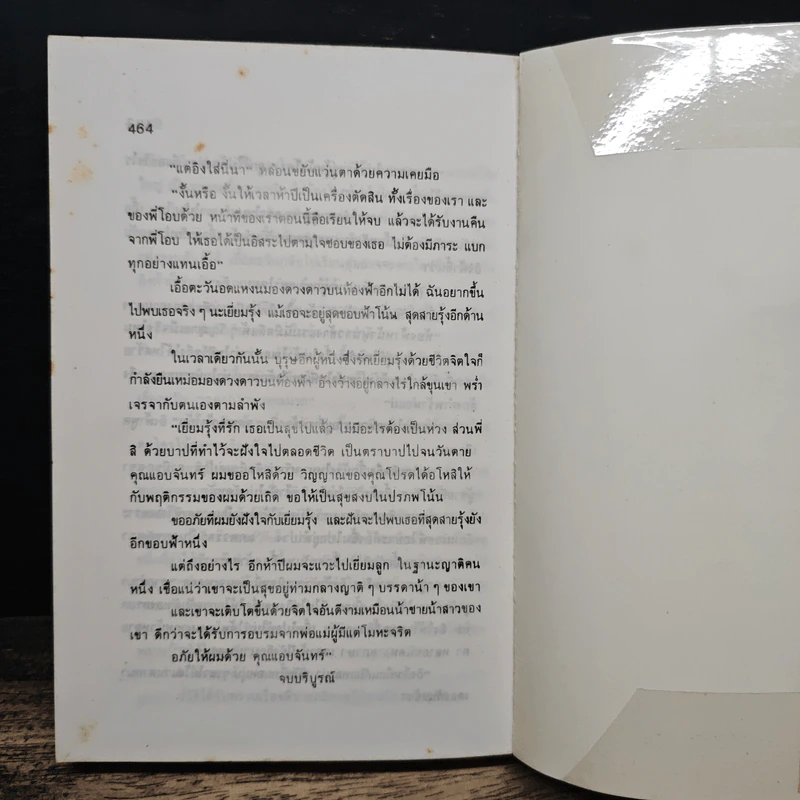 464
“แต่อิงใส่นี่นา” หล่อนขยับแว่นตาด้วยความเคยมือ
“งั้นหรือ งั้นให้เวลาห้าปีเป็นเครื่องตัดสิน ทั้งเรื่องของเรา และ
ของพี่โอบด้วย หน้าที่ของเราตอนนี้คือเรียนให้จบ แล้วจะได้รับงานคืน
จากพี่โอบ ให้เธอได้เป็นอิสระไปตามใจชอบของเธอ ไม่ต้องมีภาระ แบก
ทุกอย่างแทนเอื้อ”
เอื้อตะวันอดแหงนมองดวงดาวบนท้องฟ้าอีกไม่ได้ ฉันอยากขึ้น
ไปพบเธอจริง ๆ นะเยี่ยมรุ้ง แม้เธอจะอยู่สุดขอบฟ้าโน้น สุดสายรุ้งอีกด้าน
หนึ่ง
ในเวลาเดียวกันนั้น บุรุษอีกผู้หนึ่งซึ่งรักเยี่ยมรุ้งด้วยชีวิตจิตใจก็
กำลังยืนเหม่อมองดวงดาวบนท้องฟ้า อ้างว้างอยู่กลางไร่ใกล้ขุนเขา พร่ำ
เจรจากับตนเองตามลำพัง
“เยี่ยมรุ้งที่รัก เธอเป็นสุขไปแล้ว ไม่มีอะไรต้องเป็นห่วง ส่วนพี่
สิ ด้วยบาปที่ทำไว้จะฝังใจไปตลอดชีวิต เป็นตราบาปไปจนวันตาย
คุณแอบจันทร์ ผมขออโหสิด้วย วิญญาณของคุณโปรดได้อโหสิให้
กับพฤติกรรมของผมด้วยเถิด ขอให้เป็นสุขสงบในปรภพโน้น
ขออภัยที่ผมยังฝังใจกับเยี่ยมรุ้ง และฝันจะไปพบเธอที่สุดสายรุ้งยัง
อีกขอบฟ้าหนึ่ง
แต่ถึงอย่างไร อีกห้าปีผมจะแวะไปเยี่ยมลูก ในฐานะญาติคน
หนึ่ง เชื่อแน่ว่าเขาจะเป็นสุขอยู่ท่ามกลางญาติ ๆ บรรดาน้า ๆ ของเขา
และเขาจะเติบโตขึ้นด้วยจิตใจอันดีงามเหมือนน้าชายน้าสาวของ
เขา ดีกว่าจะได้รับการอบรมจากพ่อแม่ผู้มีแต่โมหะจริต
อภัยให้ผมด้วย คุณแอบจันทร์”
จบบริบูรณ์